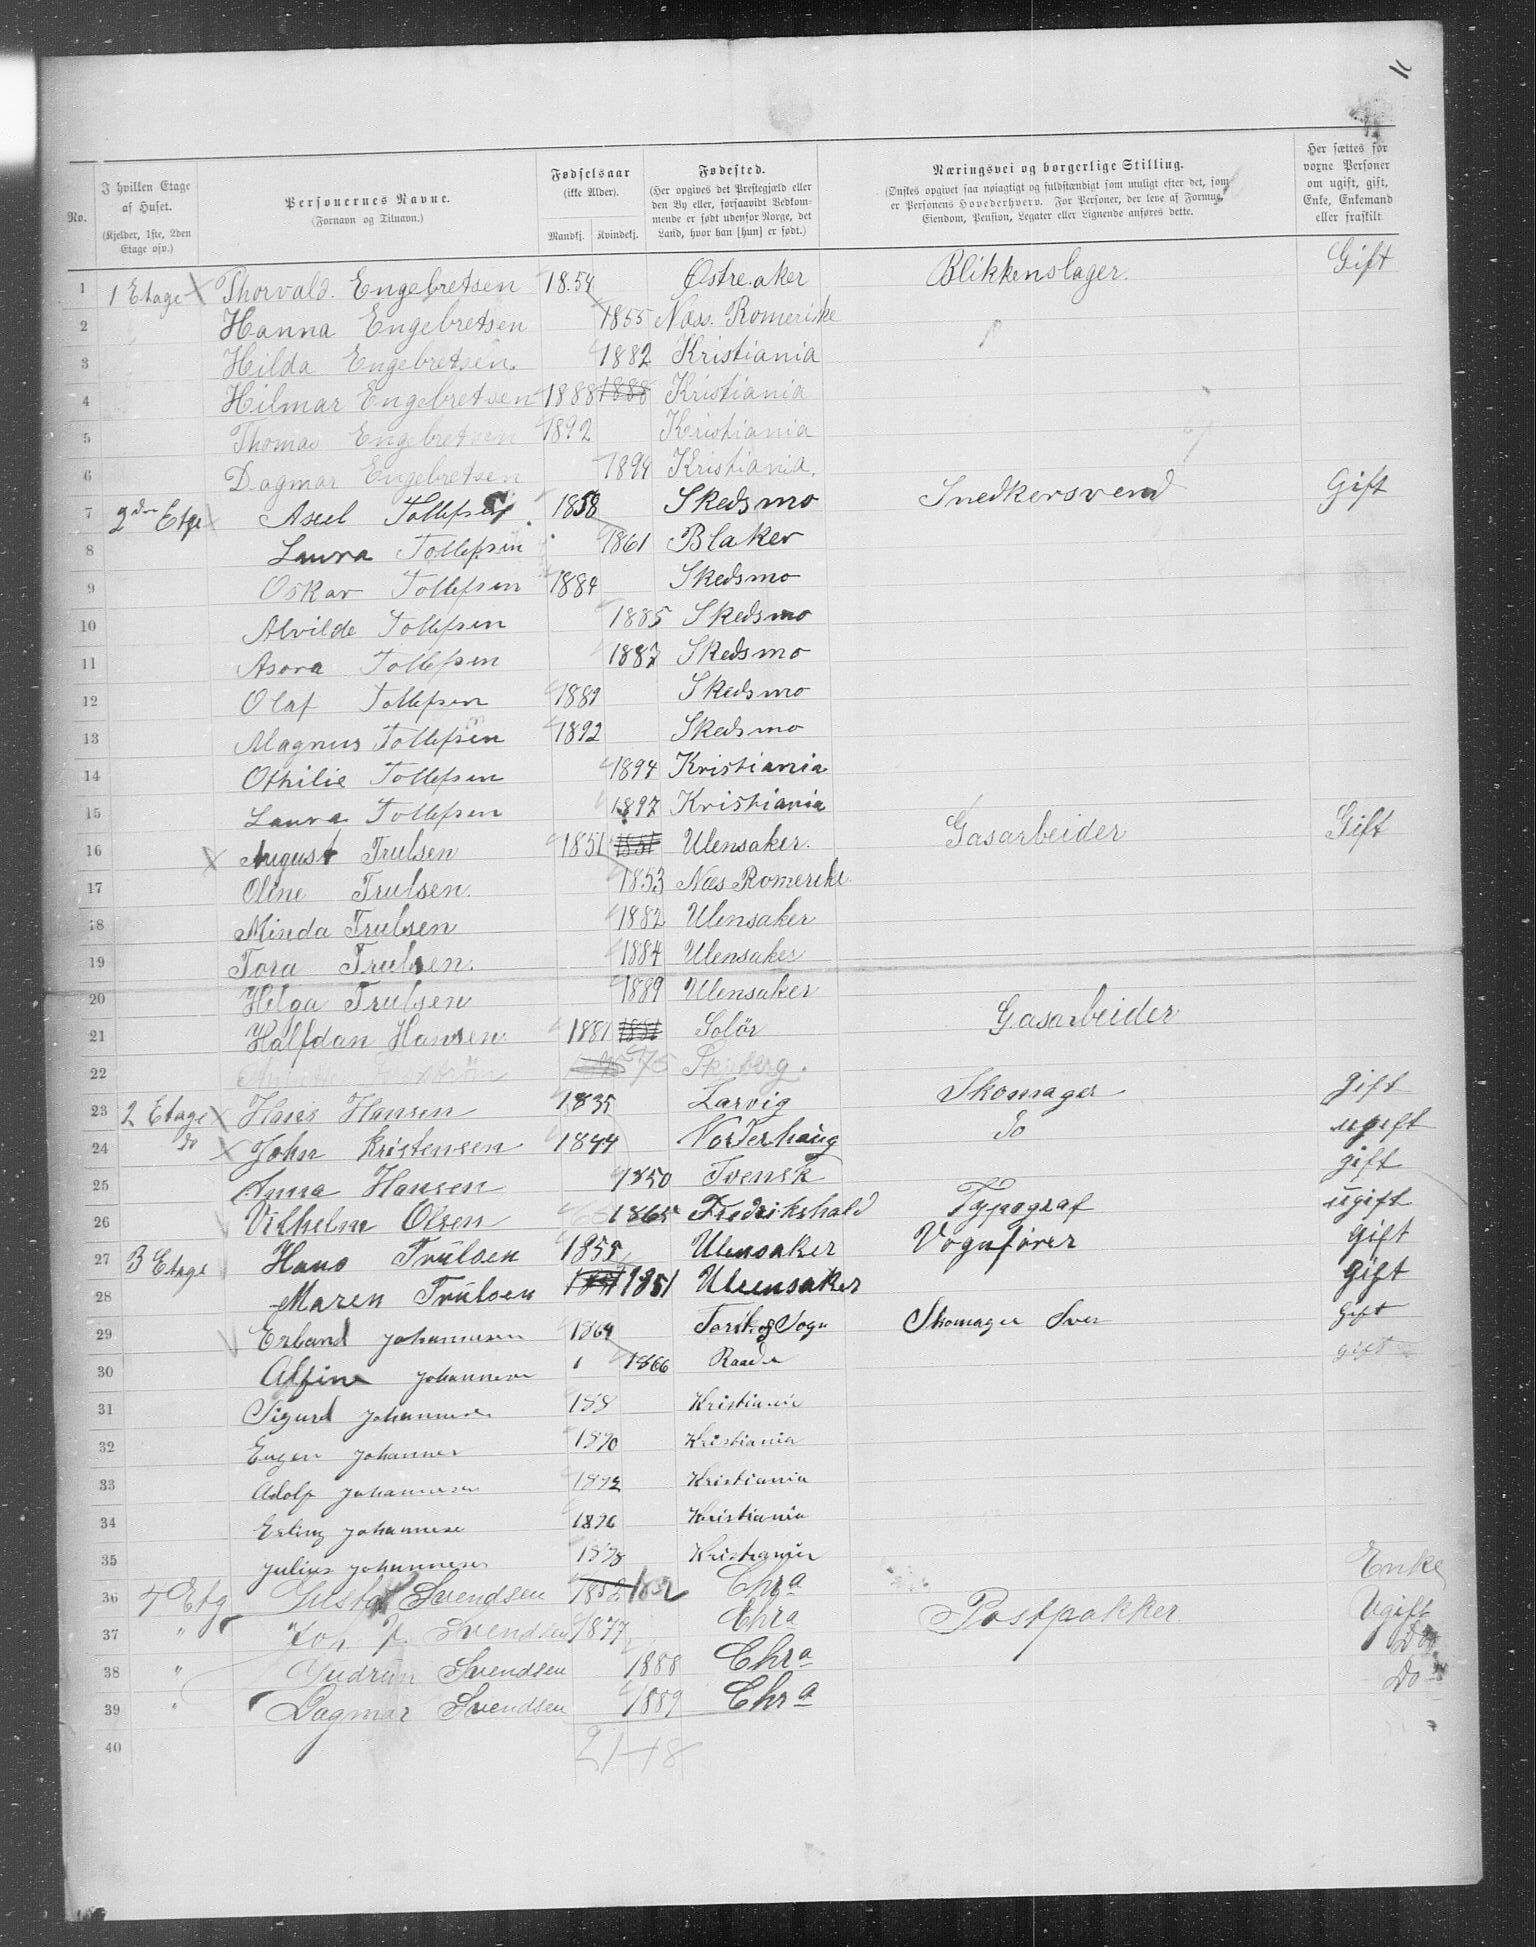 11
No.
I hvilken Etage af Huset.
(Kjelder, 1ste, 2den Etage osv.)
Personernes Navne.
(Fornavn og Tilnavn.)
Fødselsaar
(ikke Alder).
Mandkj. Kvindekj.
Fødested.
(Her opgives det Prestegjæld eller den By eller, forsaavidt Vedkommende er født udenfor Norge, det Land, hvor han [hun] er født.)
Næringsvei og borgerlige Stilling.
(Ønskes opgivet saa nøiagtigt og fuldstændigt som muligt efter det, som er Personens Hovederhverv. For Personer, der leve af Formue, Eiendom, Pension, Legater eller Lignende anføres dette.
Her sættes for voxne Personer om ugift, gift, Enke, Enkemand eller fraskilt
1 1 Etage X Thorvald. Engebretsen 1854 Østre.aker Blikkenslager. Gift
2 Hanna Engebretsen 1855 Næss. Romerike
3 Hilda Engebretsen. 1882 Kristiania
4 Hilmar Engebretsen 1888 1888 Kristiania
5 Thomas Engebretsen 1892 Kristiania
6 Dagmar Engebretsen 1894 Kristiania.
7 2den Etge Axel Tollefsen 1858 Skedsmo Snedkersvend Gift
8 Laura Tollefsen 1861 Blaker
9 Oskar Tollefsen 1884 Skedsmo
10 Alvilde Tollefsen 1885 Skedsmo
11 Asora Tollefsen 1887 Skedsmo
12 Olaf Tollefsen 1889 Skedsmo
13 Magnus Tollefsen 1892 Skedsmo
14 Othilie Tollefsen 1894 Kristiania
15 Laura Tollefsen 1897 Kristiania
16 X August Trulsen 1851 1851 Ulensaker. Gasarbeider Gift
17 Oline Trulsen. 1853 Næs Romerike
18 Minda Trulsen 1882 Ulensaker
19 Tora Trulsen. 1884 Ulensaker
20 Helga Trulsen 1889 Ulensaker
21 Halfdan Hansen 1881 1881 Solör Gasarbeider
22 75
23 2 Etage X Hans Hansen 1835 Larvig Skomager gift
24 do X John Kristensen 1844 Norderhaug do ugift
25 Anna Hansen 1850 Svensk gift
26 Vilhelm Olsen 1865 Fredrikshald Typograf ugift
27 3 Etage Hans Trulsen 1855 Ulensaker Vognfører Gift
28 Maren Trulsen 1851 Ulensaker Gift
29 Erland Johannesen 1864 Sogn Skomager Sven Gift
30 Alfine Johannesen 1866 Raade gift
31 Sigurd Johannesen Kristiania
32 Eugen Johannes 1890 Kristiania
33 Adolf Johannesen 1892 Kristiania
34 Erling Johannese 1896 Kristiania
35 Julius Johannesen 1898 Kristiania
36 4 Etg Svendsen 1852 1852 Chra Enke
37 " Svendsen 1877 Chra Postpakker Ugift
38 " Gudrun Svendsen 1888 Chra Do
39 " Dagmar Svendsen 1889 Chra Do
40 21 18